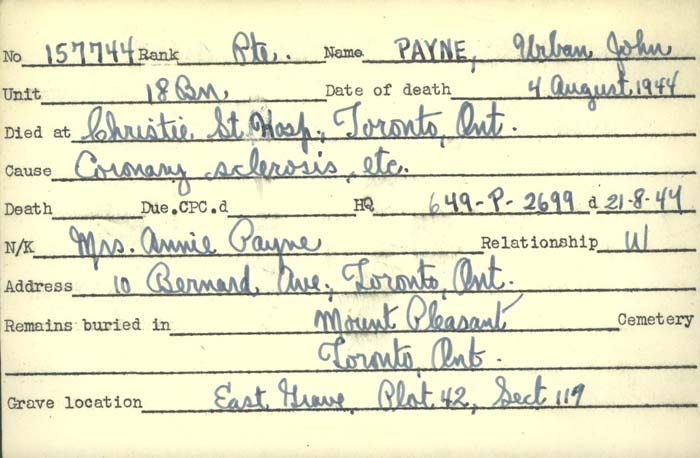 No 157744 Rank Pte. Name PAYNE, Urban John
Unit 18 Bn. Date of death 4 August, 1944
Died at Christie St Hosp., Toronto, Ont.
Cause Coronary sclerosis, etc.
Death Due.CPC.d HQ 649-P-2699 d 21-8-44
N/K Mrs. Annie Payne Relationship W
Address 10 Bernard Ave., Toronto, Ont.
Remains buried in Mount Pleasant Cemetery
Toronto, Ont.
Grave location East Grave, Plot 42, Sect 119